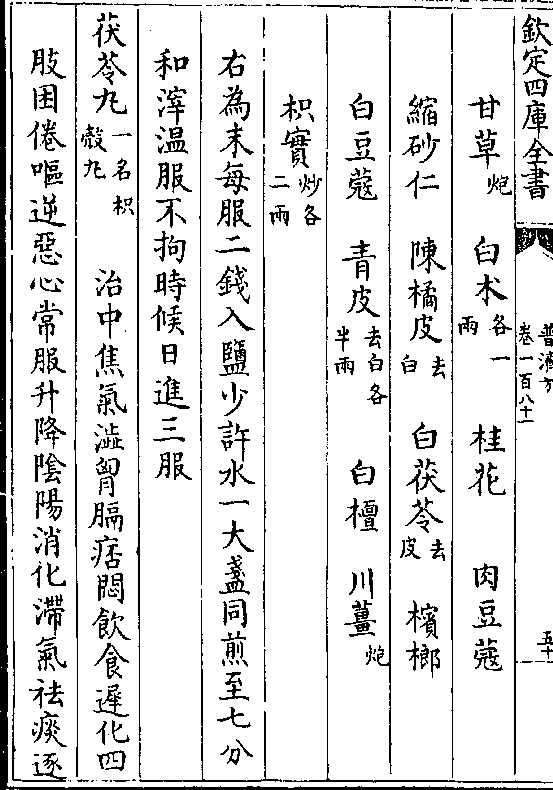 欽定四庫全書
普濟方
卷一百八十一
五十
甘草炮 白朮各一兩 桂花 肉豆蔻
縮砂仁 陳橘皮去白 白茯苓去皮 檳榔
白豆蔻 青皮去白各半兩 白檀 川薑炮
枳實炒各二兩
右為末每服二錢入鹽少許水一大盞同煎至七分
和滓温服不拘時候日進三服
茯苓丸一名枳殼丸 治中焦氣澁胷膈痞悶飲食遲化四
肢困倦嘔逆惡心常服升降陰陽消化滯氣祛痰逐